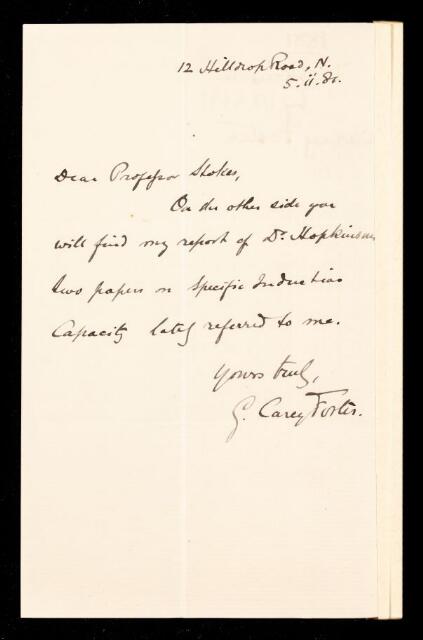 12 Hilldrop Road, N.
5.ii.81.
Dear Professor Stokes,
On the other side you
will find my report of Dr. Hopkinson's
two papers on Specific Inductive
Capacity lately referred to me.
Yours truly,
G. Carey Foster.